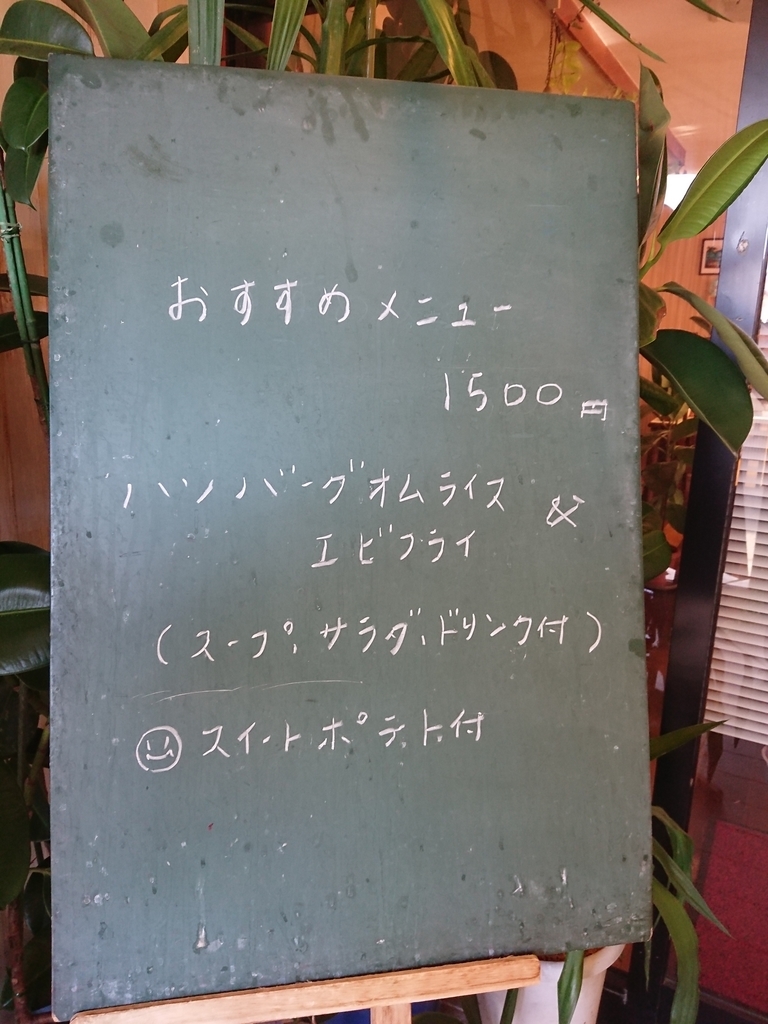 おすすめメニュー
1500円
ハンバーグオムライス &
エビフライ
(スープ、サラダ、ドリンク付)
☺ スイートポテト付